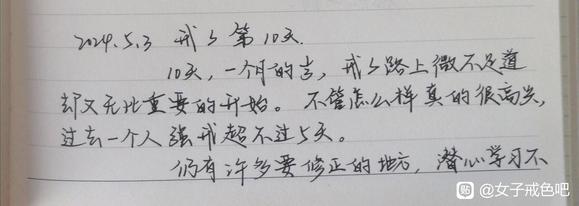 2024.5.3 戒 第10天.
10天，一个月的1/3，戒 路上微不足道
却又无比重要的开始。不管怎么样真的很高兴，
过去一个人强戒超不过5天。
仍有许多要修正的地方，潜心学习不
贴 @女子戒色吧